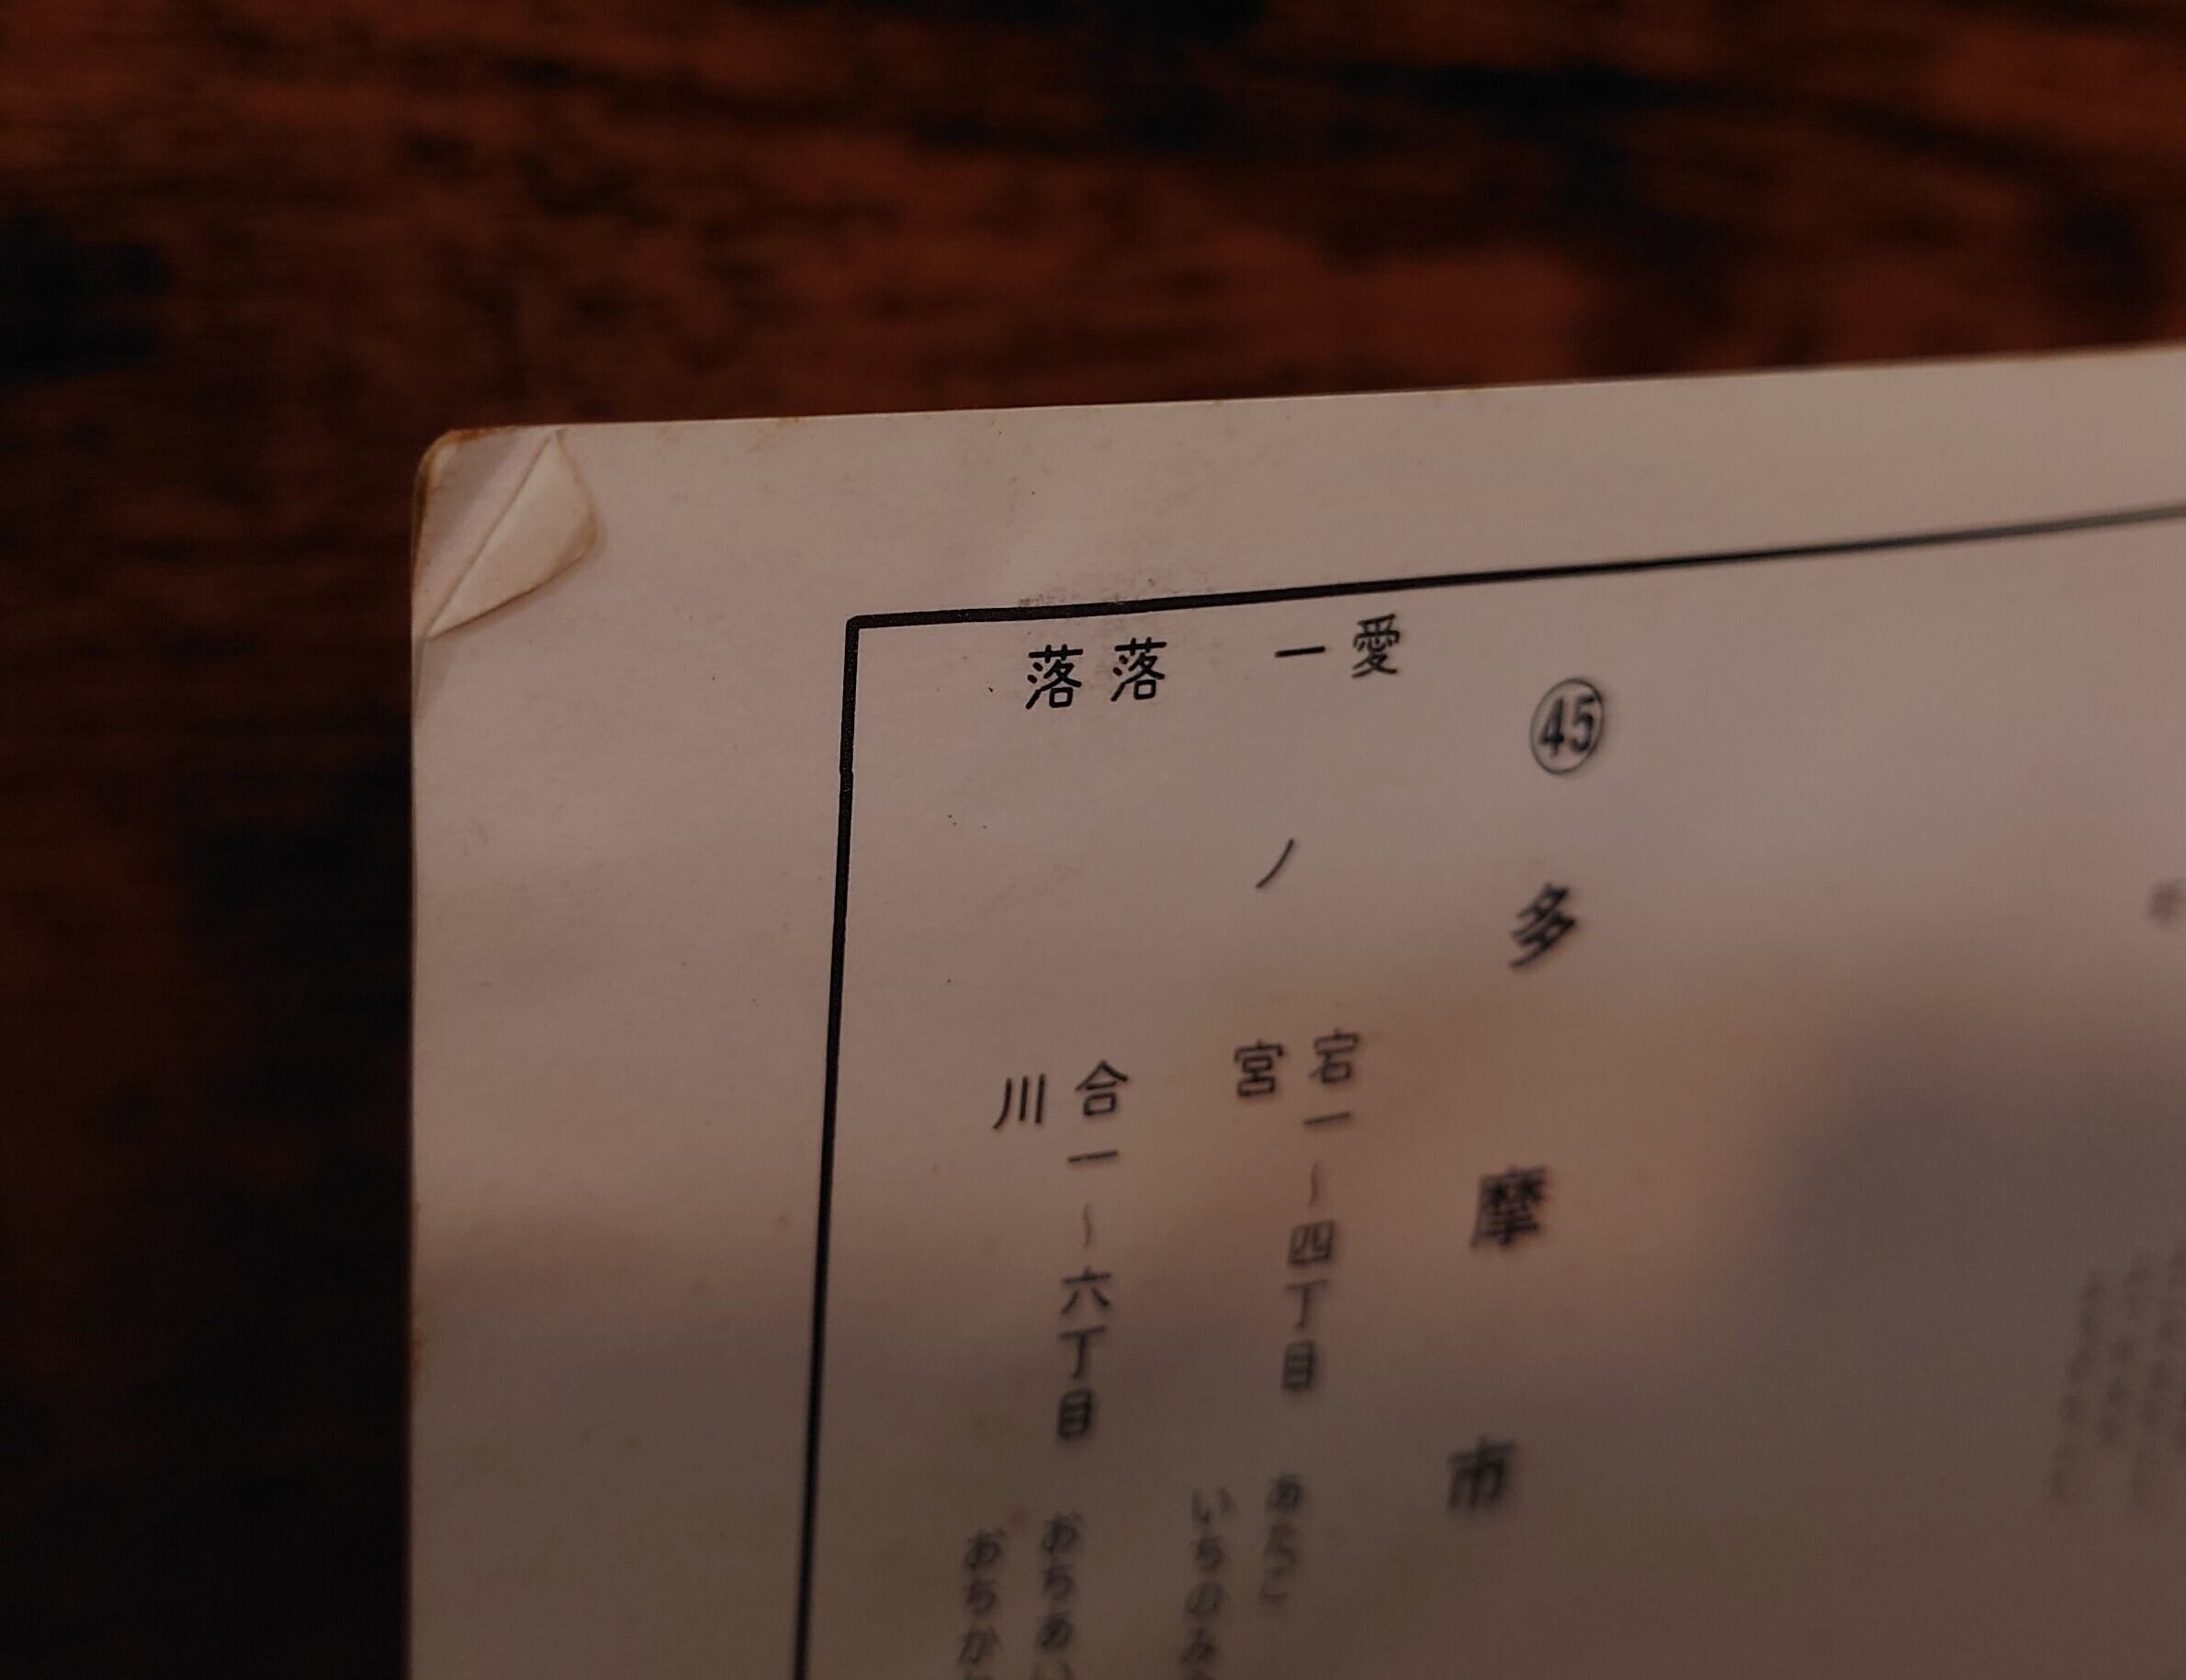 ㊺多摩市
愛宕一〜四丁目 あたご
一ノ宮 いちのみ
落合一〜六丁目 おちあい
落川 おちか